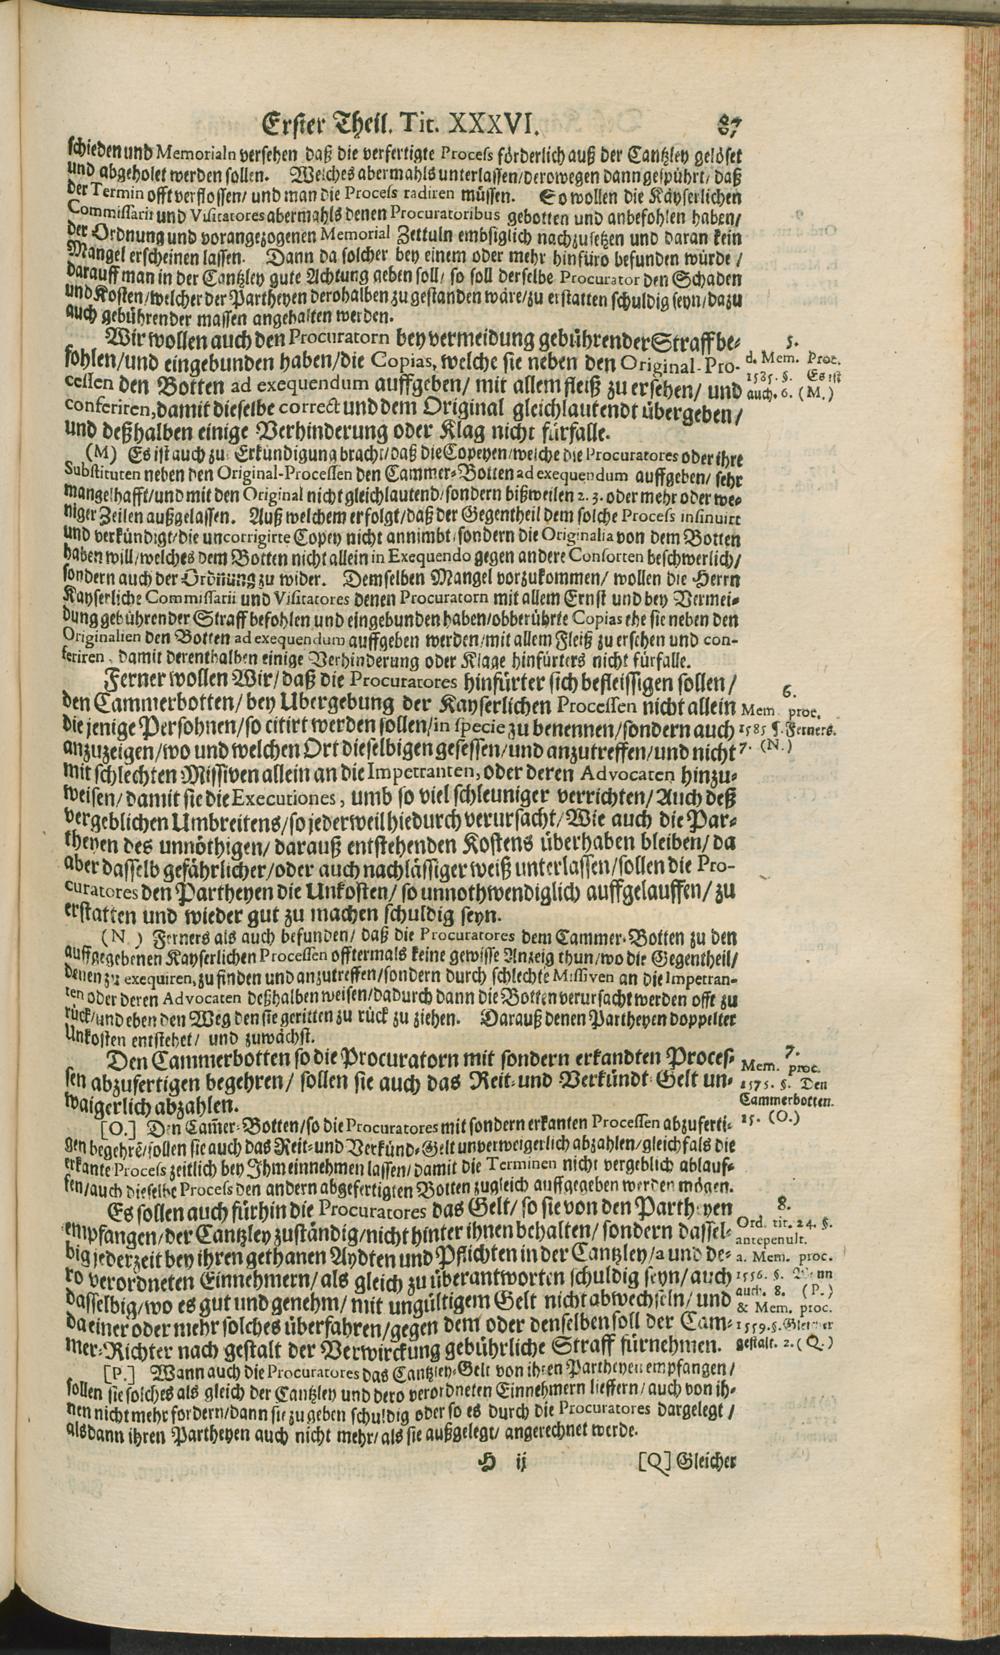 Erster Theil. Tit. XXXVI. 87
schieden und Memorialn versehen daß die verfertigte Process förderlich auß der Cantzley gelöset
und abgeholet werden sollen. Welches abermahls unterlassen/derowegen dann gespührt/ daß
der Termin offt verflossen/ und man die Process radiren müssen. So wollen die Käyserlichen
Commissarii und Visitatores abermahls denen Procuratoribus gebotten und anbefohlen haben/
der Ordnung und vorangezogenen Memorial Zettuln embsiglich nachzusetzen und daran kein
Mangel erscheinen lassen. Dann da solcher bey einem oder mehr hinfüro befunden würde /
darauff man in der Cantzley gute Achtung geben soll/ so soll derselbe Procurator den Schaden
und Kosten/welcher der Partheyen derohalben zu gestanden wäre/zu erstatten schuldig seyn/dazu
auch gebührender massen angehalten werden.
Wir wollen auch den Procuratorn bey vermeidung gebührender Straff be-
fohlen/und eingebunden haben/die Copias, welche sie neben den Original-Pro-
cessen den Botten ad exequendum auffgeben/ mit allem fleiß zu ersehen/ und
conferiren, damit dieselbe correct und dem Original gleichlautendt übergeben/
und deßhalben einige Verhinderung oder Klag nicht fürfalle.
5.
d. Mem. Proc.
1585. §. Es ist
auch. 6. (M.)
(M) Es ist auch zu Erkündigung bracht/daß die Copeyen/welche die Procuratores oder ihre
Substituten neben den Original-Processen den Cammer-Botten ad exequendum auffgeben/ sehr
mangelhafft/und mit den Original nicht gleichlautend/sondern bißweilen 2. 3. oder mehr oder we-
niger Zeilen außgelassen. Auß welchem erfolgt/daß der Gegentheil dem solche Process insinuirt
und verkündigt/die uncorrigirte Copey nicht annimbt/sondern die Originalia von dem Botten
haben will/welches dem Botten nicht allein in Exequendo gegen andere Consorten beschwerlich/
sondern auch der Ordnung zu wider. Demselben Mangel vorzukommen/ wollen die Herrn
Kayserliche Commissarii und Visitatores denen Procuratorn mit allem Ernst und bey Vermei-
dung gebührender Straff befohlen und eingebunden haben/obberührte Copias ehe sie neben den
Originalien den Botten ad exequendum auffgeben werden/mit allem Fleiß zu ersehen und con-
feriren, damit derenthalben einige Verhinderung oder Klage hinfürters nicht fürfalle.
Ferner wollen Wir/ daß die Procuratores hinfürter sich befleissigen sollen/
den Cammerbotten/ bey Ubergebung der Kayserlichen Processen nicht allein
die jenige Persohnen/so citirt werden sollen/in specie zu benennen/sondern auch
anzuzeigen/wo und welchen Ort dieselbigen gesessen/und anzutreffen/und nicht
mit schlechten Missiven allein an die Impetranten, oder deren Advocaten hinzu-
weisen/damit sie die Executiones, umb so viel schleuniger verrichten/Auch deß
vergeblichen Umbreitens/so jederweil hiedurch verursacht/Wie auch die Par-
theyen des unnöthigen/ darauß entstehenden Kostens überhaben bleiben/ da
aber dasselb gefährlicher/oder auch nachlässiger weiß unterlassen/sollen die Pro-
curatores den Partheyen die Unkosten/ so unnothwendiglich auffgelauffen/ zu
erstatten und wieder gut zu machen schuldig seyn.
6.
Mem. proc.
1585 §. Ferners.
7. (N.)
(N.) Ferners als auch befunden/ daß die Procuratores dem Cammer-Botten zu den
auffgegebenen Kayserlichen Processen offtermals keine gewisse Anzeig thun/wo die Gegentheil/
denen zu exequiren, zu finden und anzutreffen/sondern durch schlechte Missiven an die Impetran-
ten oder deren Advocaten deßhalben weisen/dadurch dann die Botten verursacht werden offt zu
rück/und eben den Weg den sie geritten zu rück zu ziehen. Darauß denen Partheyen doppelter
Unkosten entstehet/ und zuwächst.
Den Cammerbotten so die Procuratorn mit sondern erkandten Proces-
sen abzufertigen begehren/ sollen sie auch das Reit- und Verkündt-Gelt un-
waigerlich abzahlen.
7.
Mem. proc.
1575. §. Den
Cammerbotten.
15. (O.)
[O.] Den Cam̃er-Botten/so die Procuratores mit sondern erkanten Processen abzuferti-
gen begehrẽ/sollen sie auch das Reit- und Verkünd-Gelt unverweigerlich abzahlen/gleichfals die
erkante Process zeitlich bey Ihm einnehmen lassen/damit die Terminen nicht vergeblich ablauf-
fen/auch dieselbe Process den andern abgefertigten Botten zugleich auffgegeben werden mögen.
Es sollen auch fürhin die Procuratores das Gelt/ so sie von den Partheyen
empfangen/der Cantzley zuständig/nicht hinter ihnen behalten/sondern dassel-
big jederzeit bey ihren gethanen Aydten und Pflichten in der Cantzley/a und de-
ro verordneten Einnehmern/als gleich zu überantworten schuldig seyn/auch
dasselbig/wo es gut und genehm/ mit ungültigem Gelt nicht abwechseln/ und
da einer oder mehr solches überfahren/gegen dem oder denselben soll der Cam-
mer-Richter nach gestalt der Verwirckung gebührliche Straff fürnehmen.
8.
Ord. tit. 24. §.
antepenult.
a. Mem. proc.
1556. §. Wann
auch. 8. (P.)
& Mem. proc.
1559. §. Gleicher
gestalt. 2. (Q.)
[P.] Wann auch die Procuratores das Cantzley-Gelt von ihren Partheyen empfangen/
sollen sie solches als gleich der Cantzley und dero verordneten Einnehmern lieffern/auch von ih-
nen nicht mehr fordern/dann sie zu geben schuldig oder so es durch die Procuratores dargelegt /
alsdann ihren Partheyen auch nicht mehr/als sie außgelegt/ angerechnet werde.
H ij [Q] Gleicher